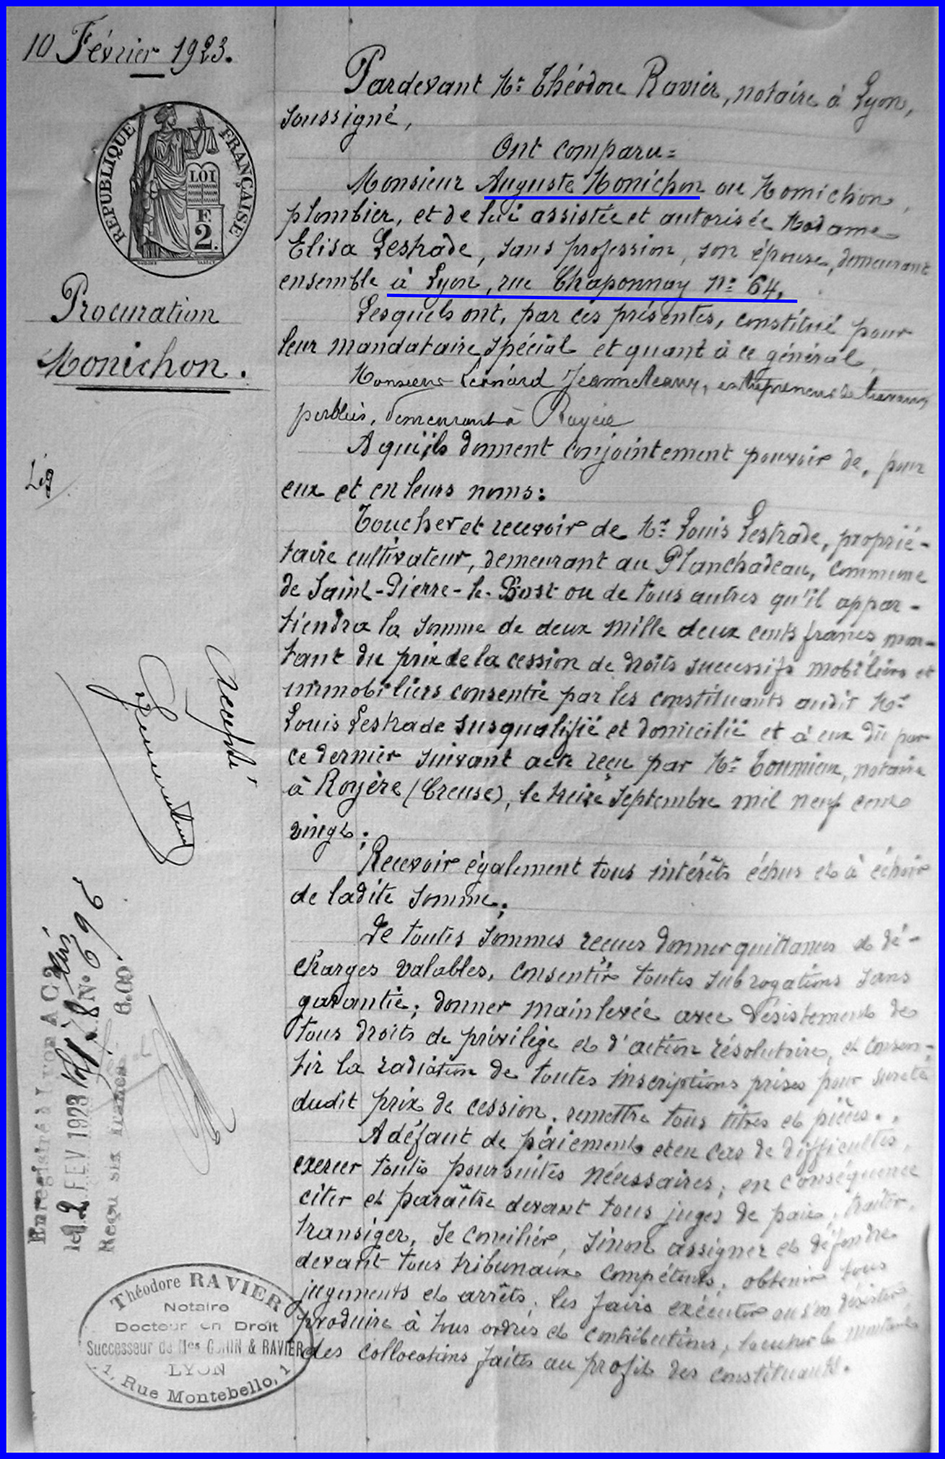 10 Février 1923.
RÉPUBLIQUE FRANÇAISE
LOI
F
2.
Procuration
Monichon.
Pardevant Me Théodore Ravier, notaire à Lyon,
soussigné,
Ont comparu=
Monsieur Auguste Monichon ou Momichon,
plombier, et de lui assistée et autorisée Madame
Elisa Lestrade, sans profession, son épouse, demeurant
ensemble à Lyon, rue Chaponnay No 64.
Lesquels ont, par ces présentes, constitué pour
leur mandataire spécial et quant à ce général,
Monsieur Léonard entrepreneur de travaux
publics, demeurant à Royère
A qui ils donnent conjointement pouvoir de, pour
eux et en leurs noms:
Toucher et recevoir de Mr Louis Lestrade, proprié-
taire cultivateur, demeurant au Planchadeau, commune
de Saint-Pierre-le-Bost ou de tous autres qu'il appar-
tiendra la somme de deux mille deux cents francs mon-
tant du prix de la cession de droits successifs mobiliers et
immobiliers consentie par les constituants audit Mr
Louis Lestrade susqualifié et domicilié et à eux dû par
ce dernier suivant acte reçu par Me Toumieux, notaire
à Royère (Creuse), le treize Septembre mil neuf cent
vingt;
Recevoir également tous intérêts échus et à échoir
de ladite somme;
De toutes sommes reçues donner quittances et dé-
charges valables, consentir toutes subrogations sans
garantie; donner mainlevée avec désistement de
tous droits de privilège et d'action résolutoire, et consen-
tir la radiation de toutes inscriptions prises pour sureté
dudit prix de cession, remettre tous titres et pièces.
A défaut de paiement et en cas de difficultés,
exercer toutes poursuites nécessaires; en conséquence
citer et paraître devant tous juges de paix, traiter,
transiger, se concilier, sinon assigner et défendre
devant tous tribunaux compétents, obtenir tous
jugements et arrêts, les faire exécuter ou s'en désister,
produire à tous ordres et contributions, toucher le montant
des collocations faites au profit des constituants.
Accepté
Enregistré à Lyon A.C.
le 12 FEV 1923 No 696
Reçu six francs 6.00
Théodore RAVIER
Notaire
Docteur en Droit
Successeur de Mes & RAVIER
LYON
1, Rue Montebello, 1